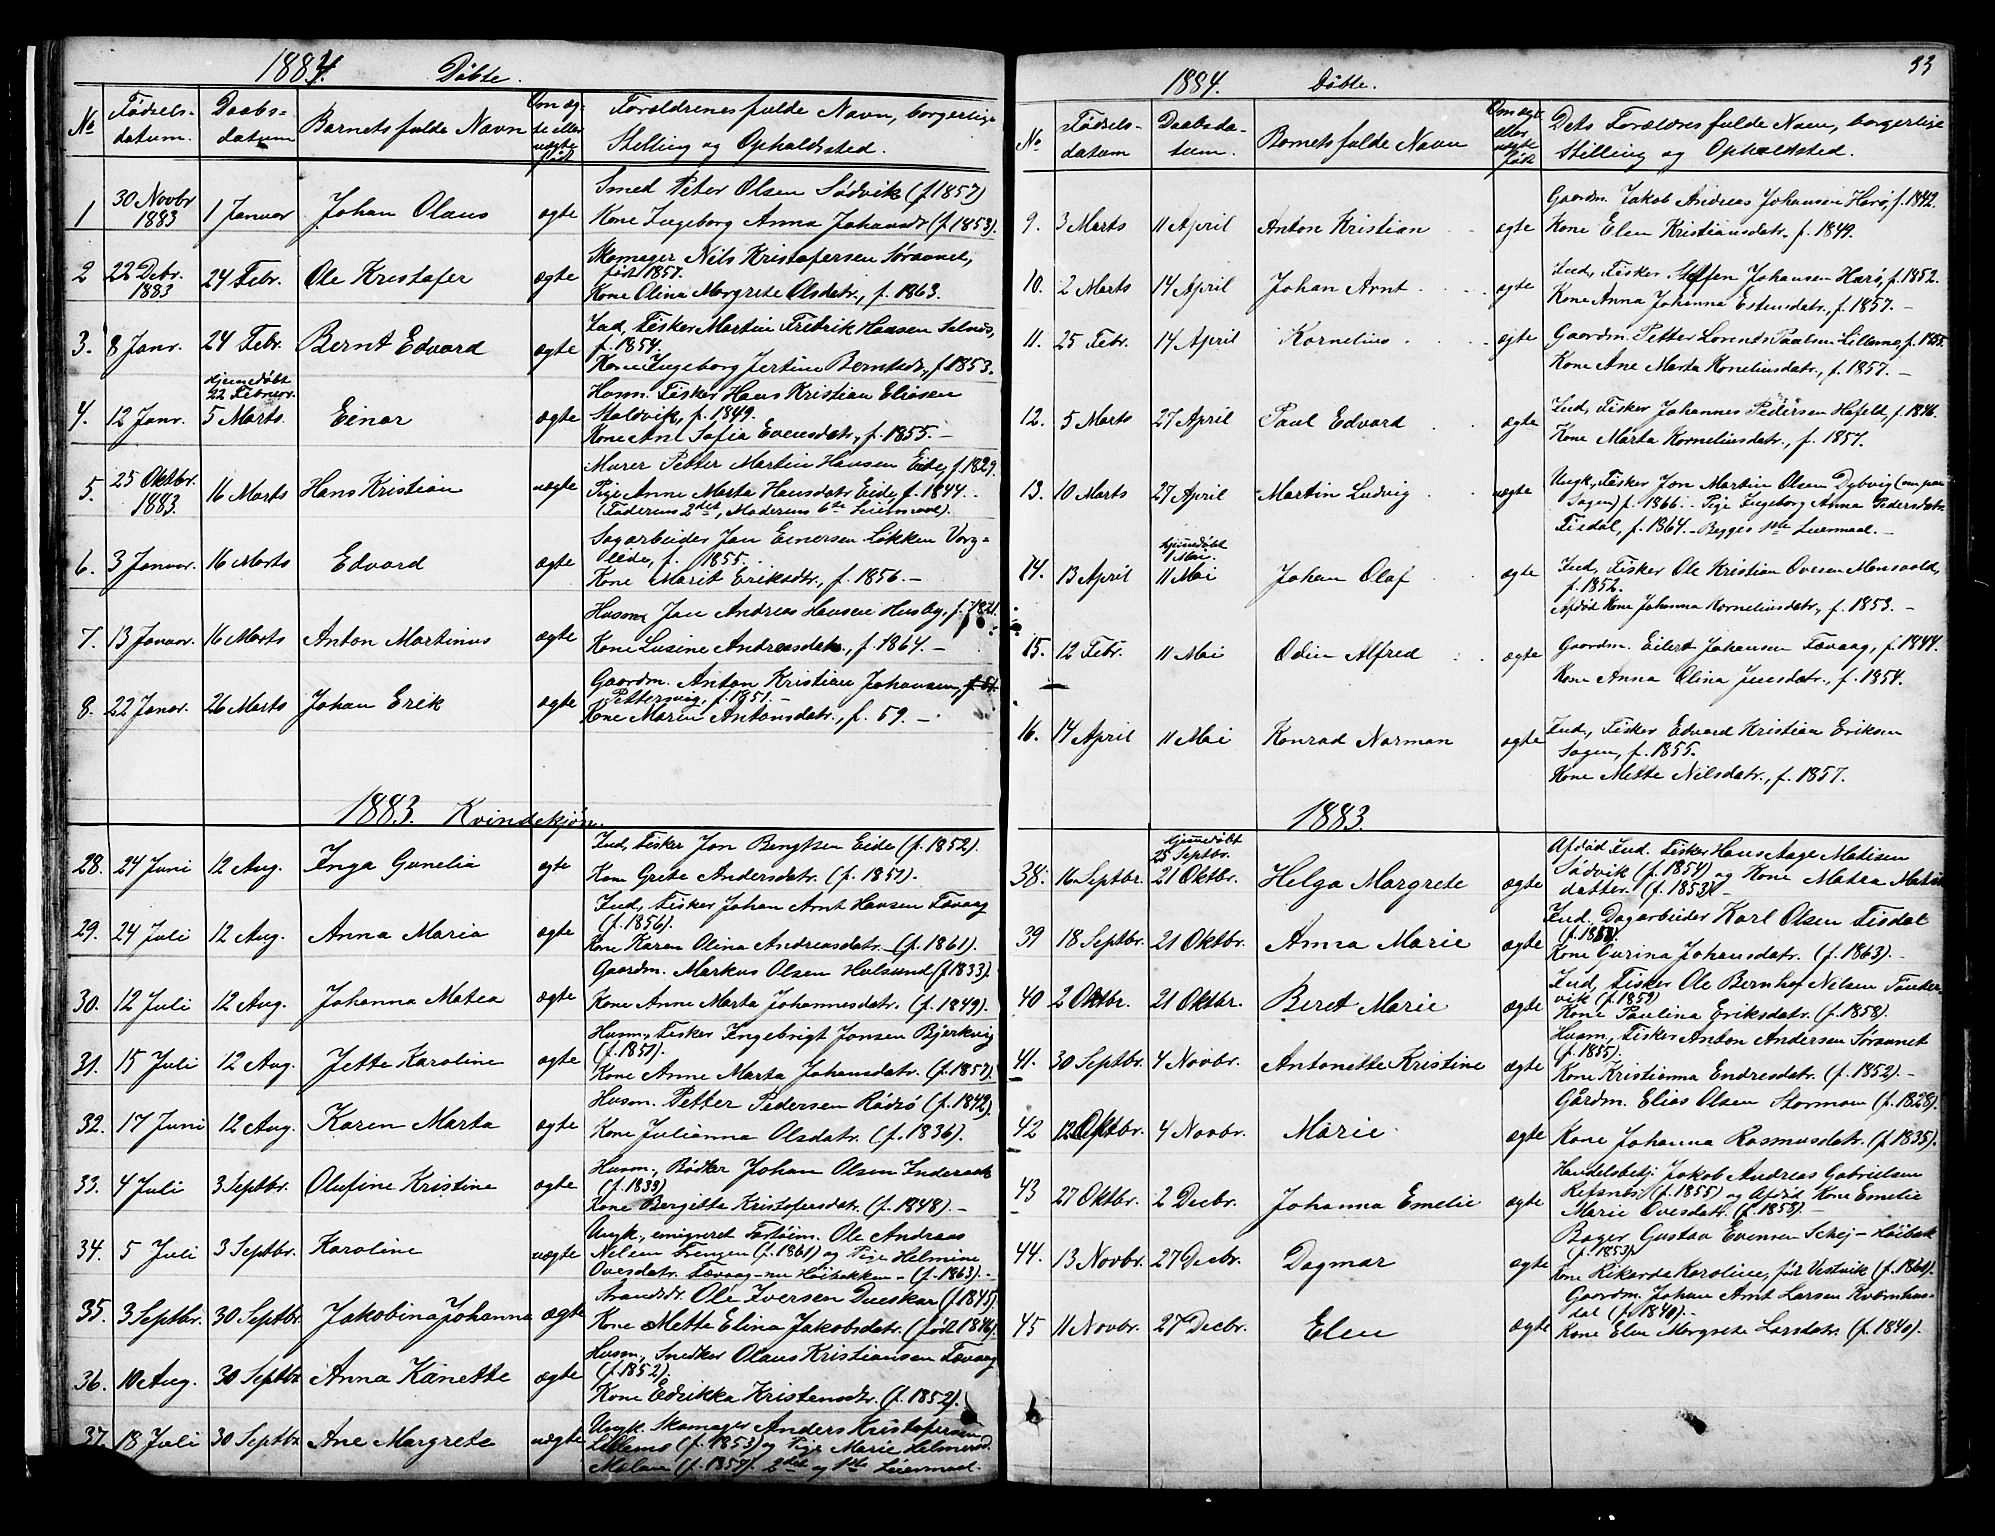 1884. Døbte.
No Fødselsdatum. Daabsdatum Barnets fulde Navn Om ægte eller uægte født Forældrenes fulde Navn, borgerlige Stilling og Opholdssted.
1 30 Novbr 1883 1 Januar Johan Olaus ægte Smed Peter Olsen Sødvik (f. 1857)
Kone Ingeborg Anna Johansdr (f. 1853).
2 22 Debr. 1883 24 Febr. Ole Kristofer ægte Skomager Nils Kristofersen Søraunet,
født 1857.
Kone Olina Margrete Olsdatr., f. 1863.
3. 8 Janr. 24 Febr. Bernt Edvard ægte Ind., Fisker Martin Fredrik Hansen Selnes,
f. 1854,
Kone Ingeborg Jertine Berntsdr., f. 1853.
4. 12 Janr. hjemmedøbt 22 Februar. 5 Marts. Einar ægte Husm. Fisker Hans Kristian Eliasen
Staldvik, f. 1849.
Kone Ane Sofia Evensdatr., f. 1855. -
5. 25 Oktbr. 1883. 16 Marts Hans Kristian uægte Murer Petter Martin Hansen Eide, f. 1829.
Pige Anne Marta Hansdatr Eide, f. 1844. -
(Faderens 2det, Moderens 6te Leiermaal).
6. 3 Januar. 16 Marts Edvard ægte Sagarbeider Jan Einersen Løkken Varg-
eide, f. 1855.
Kone Marit Eriksdtr., f. 1856. -
7. 13 Januar. 16 Marts Anton Martinus ægte Husm. Jan Andreas Hansen Husby, f. 1821.
Kone Lusine Andreasdatr., f. 1864. -
8. 22 Janar. 26 Marts Johan Erik ægte Gaardm. Anton Kristian Johansen, f. 51.
Pettersvåg, f. 1851. -
Kone Maren Antonsdatr., f. 59. -
1883. Kvindekjøn.
28. 24 Juni 12 Aug. Inga Gunelia ægte Ind., Fisker Jon Bengtsen Eide (f. 1852).
Kone Grete Andersdatr. (f. 1851).
29. 24 Juli 12 Aug. Anna Maria ægte Ind., Fisker Johan Arnt Hansen Tævaag
(f. 1856).
Kone Karen Olina Andreasdatr. (f. 1861).
30. 12 Juli 12 Aug. Johanna Matea ægte Gaardm. Markus Olsen Hulsund (f. 1833).
Kone Anne Marta Johannesdatr. (f. 1849).
31. 15 Juli 12 Aug. Jette Karoline ægte Husm., Fisker Ingebrigt Jonsen Bjerkvig
(f. 1851).
Kone Anne Marta Johansdatr. (f. 1857).
32. 17 Juni 12 Aug. Karen Marta ægte Husm. Petter Pedersen Rødsø (f. 1842).
Kone Julianna Olsdatr. (f. 1836).
33. 4 Juli 3 Septbr. Olufine Kristine ægte Husm., Bødker Johan Olsen
(f. 1839)
Kone Bergitte Kristofersdatr. (f. 1848). -
34. 5 Juli 3 Septbr. Karoline uægte Ungk., emigreret Ole Andreas
Nelsen Trengen (f. 1861) og Pige Helmine
Ovesdatr. Tævaag - nu Høibakken - (f. 1863). -
35. 3 Septbr. 30 Septbr. Jakobina Johanna ægte Ole Iversen Dueskar (f. 1845).
Kone Mette Elina Jakobsdatr. (født 1846).
36. 10 Aug. 30 Septbr Anna Kanette ægte Husm., Snedker Olaus Kristiansen Tævaag
(f. 1852).
Kone Edrikka Kristensdr. (f. 1852).
37. 18 Juli 30 Septbr Ane Margrete uægte Ungk. Skomager Anders Kristofersen
Lillemo (f. 1853) og Pige Marie
(f. 1857). 2det og 1ste Leiermaal.
33
1884. Døbte.
No Fødselsdatum Daabsdatum. Barnets fulde Navn Om ægte eller uægte født Dets Forældres fulde Navn, borgerlige Stilling og Opholdsted.
9. 3 Marts 11 April Anton Kristian ægte Gaardm. Jakob Andreas Johansen Harø, f. 1842.
Kone Elen Kristiansdatr., f. 1849.
10. 2 Marts 14 April Johan Arnt ægte Ind., Fisker Steffen Johansen Harø, f. 1852.
Kone Anna Johanna Estensdatr., f. 1857. -
11. 25 Febr. 14 April Kornelius ægte Gaardm. Petter Lorents Paalsen Lillemo, f. 1855.
Kone Ane Marta Korneliusdatr., f. 1857. -
12. 5 Marts 27 April Paul Edvard ægte Ind., Fisker Johannes Pedersen Hofeld, f. 1846.
Kone Marta Korneliusdatr., f. 1857.
13. 10 Marts 27 April Martin Ludvig uægte Ungk., Fisker Jon Martin Olsen Dybvig (nu paa
Sagen) f. 1866. - Pige Ingeborg Anna Pedersdatr
Fisdal, f. 1864. - Begges 1ste Leiermaal. -
14. 13 April hjemmedøbt 1 Mai. 11 Mai Johan Olaf ægte Ind., Fisker Ole Kristian Ovesen Monsvold,
f. 1852.
Afdød Kone Johanna Korneliusdatr., f. 1853. -
15. 12 Febr. 11 Mai Odin Alfred ægte Gaardm. Eilert Johansen Tævaag, f. 1844.
Kone Anna Olina Jensdatr., f. 1854.
16. 14 April 11 Mai Konrad Norman ægte Ind., Fisker Edvard Kristian Eriksen
Sagen, f. 1855.
Kone Mette Nilsdatr., f. 1857.
1883.
38. 16 Septbr. hjemmedøbt 25 Septbr. 21 Oktbr. Helga Margrete ægte Afdød Ind. Fisker Hans Aage Matisen
Sødvik (f. 1854) og Kone Matea
datter. (f. 1853). -
39 18 Septbr. 21 Oktbr. Anna Marie ægte Ind., Dagarbeider Karl Olsen Fisdal
Kone Gurina Johansdatr. (f. 1863). -
40 2 Oktbr. 21 Oktbr. Beret Marie ægte Ind., Fisker Ole Bernhof Nelsen Tønder-
vik (f. 1859)
Kone Paulina Eriksdatr. (f. 1858).
41. 30 Septbr. 4 Novbr. Antonette Kristine ægte Husm., Fisker Anton Andersen Søraunet
(f. 1855).
Kone Kristianna Endresdatr. (f. 1852). -
42 12 Oktbr. 4 Novbr. Marie ægte Gårdm. Elias Olsen Stormoen (f. 1828).
Kone Johanna Rasmusdatr. (f. 1835).
43 27 Oktbr. 2 Decbr. Johanna Emelie ægte Handelsbetj. Jakob Andreas Gabrielsen
Refsnes, (f. 1855) og Afdød Kone Emelie
Marie Ovesdatr. (f. 1858). -
44. 13 Novbr. 27 Decbr. Dagmar ægte Bager Gustav Evensen Schei - Høibak
(f. 1853)
Kone Rikarda Karoline, før Vestvik (f. 1860).
45 11 Novbr. 27 Decbr. Elen ægte Gaardm. Johan Arnt Larsen Kværnhus-
dal (f. 1840). -
Kone Elen Margrete Larsdatr. (f. 1840).